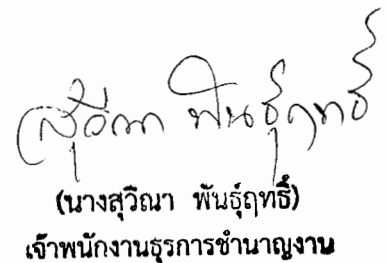 สุวีณา พันธุ์ฤทธิ์
(นางสุวีณา พันธุ์ฤทธิ์)
เจ้าพนักงานธุรการชำนาญงาน